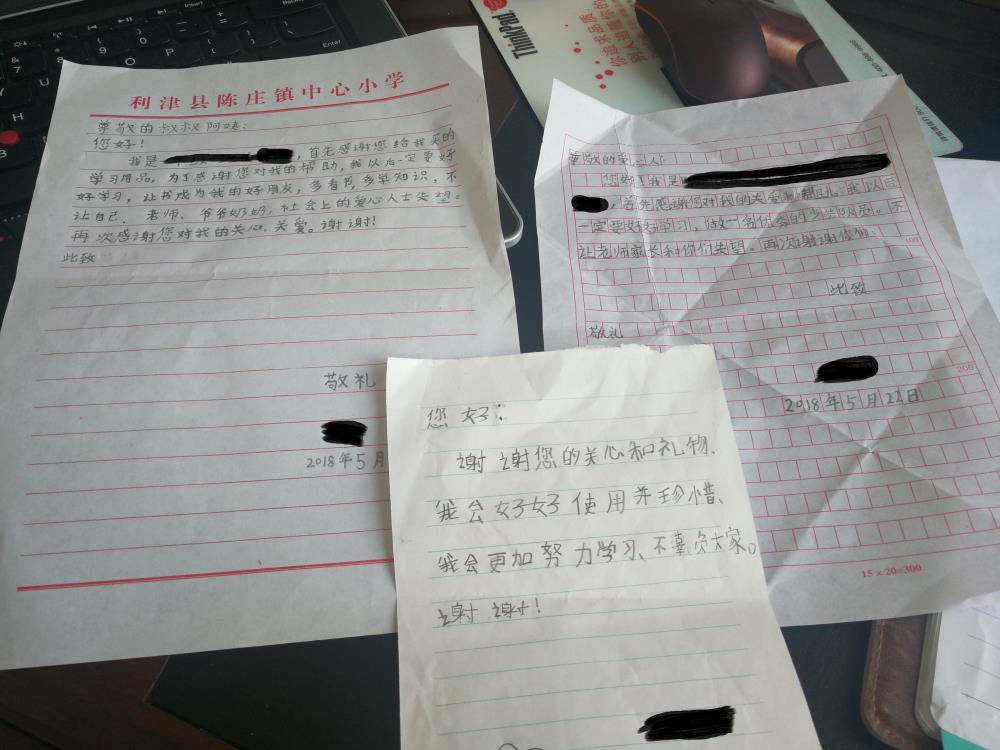 利津县陈庄镇中心小学
尊敬的叔叔阿姨:
您好!
我是 ,首先感谢您给我买的
学习用品,为了感谢您对我的帮助,我以后一定要好
好学习,让书成为我的好朋友,多看书,多学知识,不
让自己、老师、爷爷奶奶,社会上的爱心人士失望。
再次感谢您对我的关心、关爱。谢谢!
此致
敬礼
2018年5月
尊敬的爱心人
您好!我是
,首先感谢您对我的关爱和帮助。我以后
一定要好好学习,做一名优秀的少先队员。不
让老师家长和你们失望。再次谢谢你们。
此致
敬礼
2018年5月22日
100
200
15×20=300
您好:
谢谢您的关心和礼物、
我会好好使用并珍惜、
我会更加努力学习、不辜负大家。
谢谢!
ThinkPad
Enter